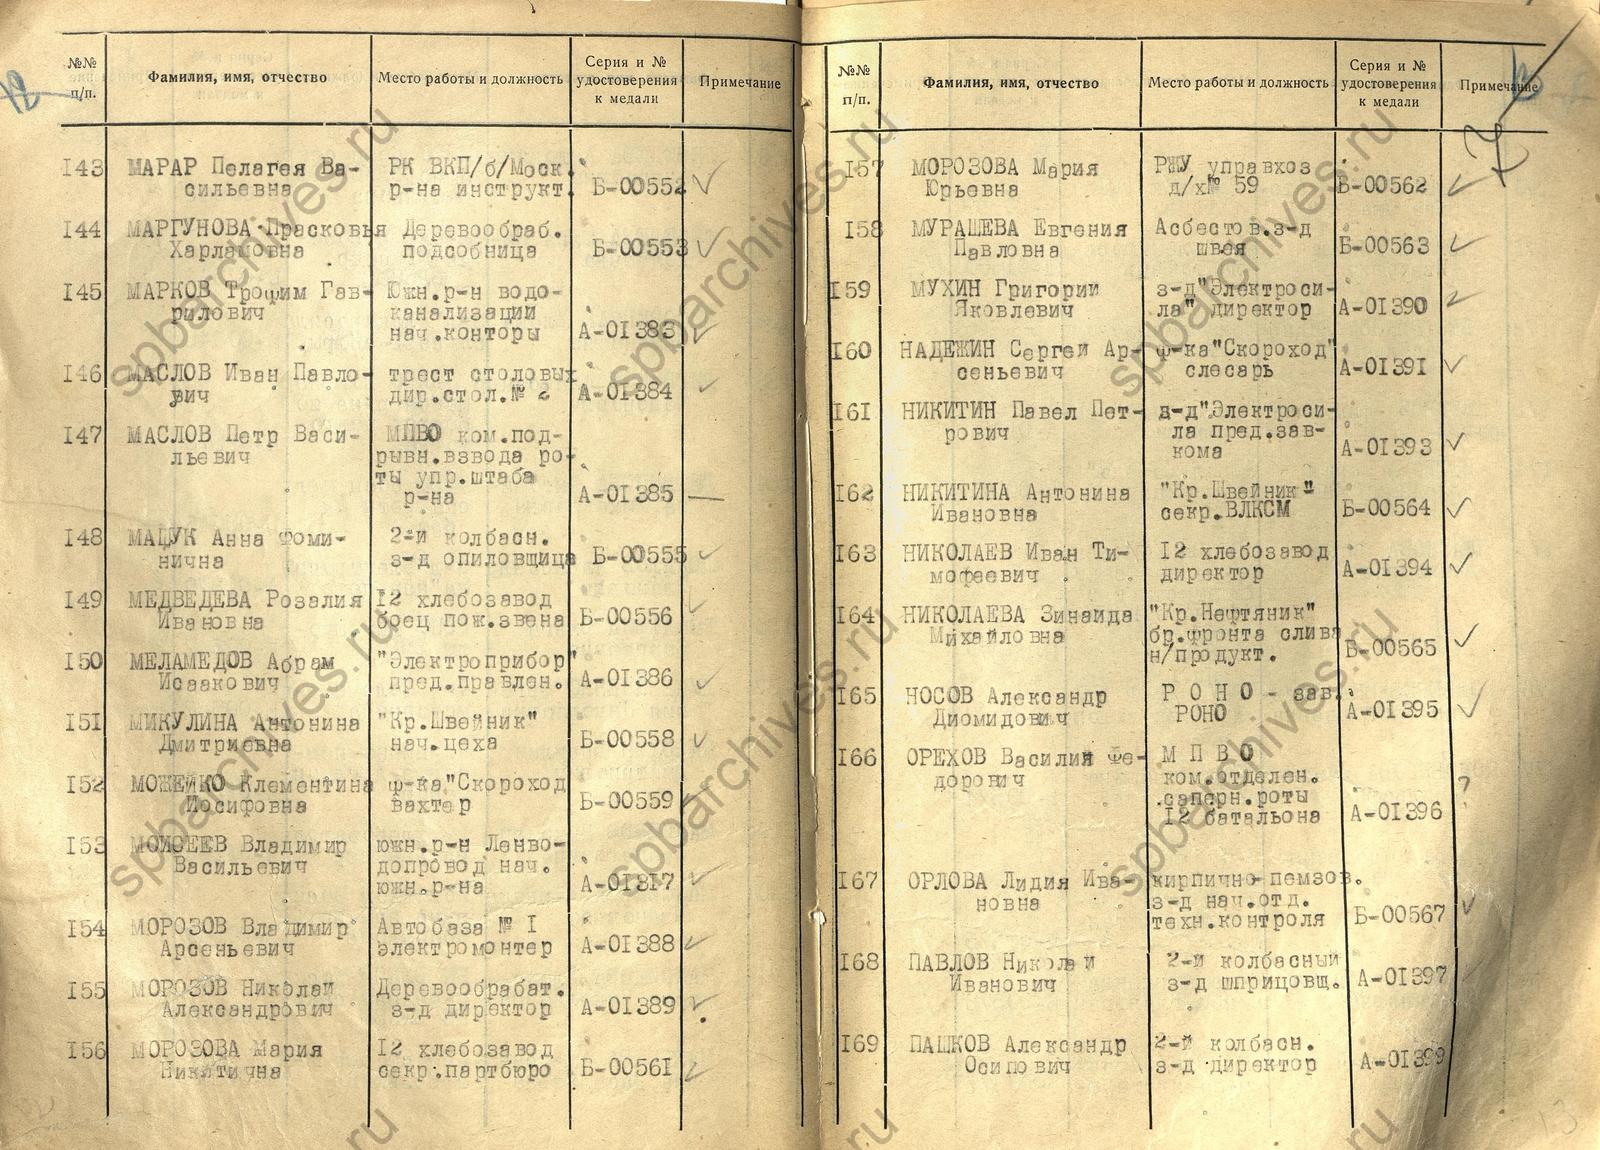 №№ п/п.
Фамилия, имя, отчество
Место работы и должность
Серия и № удостоверения к медали
Примечание
I43 МАРАР Пелагея Ва- РК ВКП/б/Моск.
сильевна р-на инструкт. Б-00552
I44 МАРГУНОВА Прасковья Деревообраб.
Харлаповна подсобница Б-00553
I45 МАРКОВ Трофим Гав- Южн.р-н водо-
рилович канализации
нач.конторы А-0I383
I46 МАСЛОВ Иван Павло- трест столовых
вич дир.стол.№ 2 А-0I384
I47 МАСЛОВ Петр Васи- МПВО ком.под-
льевич рывн.взвода ро-
ты упр.штаба
р-на А-0I385
I48 МАЦУК Анна Фоми- 2-й колбасн.
нична з-д опиловщица Б-00555
I49 МЕДВЕДЕВА Розалия I2 хлебозавод
Ивановна боец пож.звена Б-00556
I50 МЕЛАМЕДОВ Абрам "Электроприбор"
Исаакович пред.правлен. А-0I386
I5I МИКУЛИНА Антонина "Кр.Швейник"
Дмитриевна нач.цеха Б-00558
I52 МОЖЕЙКО Клементина ф-ка"Скороход
Иосифовна вахтер Б-00559
I53 МОИСЕЕВ Владимир южн.р-н Ленво-
Васильевич допровод нач.
южн.р-на А-0I3I7
I54 МОРОЗОВ Владимир Автобаза № I
Арсеньевич электромонтер А-0I388
I55 МОРОЗОВ Николай Деревообрабат.
Александрович з-д директор А-0I389
I56 МОРОЗОВА Мария I2 хлебозавод
Никитична секр.партбюро Б-0056I
№№ п/п.
Фамилия, имя, отчество
Место работы и должность
Серия и № удостоверения к медали
Примечание
I57 МОРОЗОВА Мария РЖУ управхоз
Юрьевна д/х№ 59 Б-00562
I58 МУРАШЕВА Евгения Асбестов.з-д
Павловна швея Б-00563
I59 МУХИН Григорий з-д"Электроси-
Яковлевич ла" директор А-0I390
I60 НАДЕЖИН Сергей Ар- ф-ка"Скороход"
сеньевич слесарь А-0I39I
I6I НИКИТИН Павел Пет- з-д"Электроси-
рович ла пред.зав-
кома А-0I393
I62 НИКИТИНА Антонина "Кр.Швейник"
Ивановна секр.ВЛКСМ Б-00564
I63 НИКОЛАЕВ Иван Ти- I2 хлебозавод
мофеевич директор А-0I394
I64 НИКОЛАЕВА Зинаида "Кр.Нефтяник"
Михайловна бр.фронта слива
н/продукт. Б-00565
I65 НОСОВ Александр Р О Н О - зав.
Диомидович РОНО А-0I395
I66 ОРЕХОВ Василий Фе- М П В О
дорович ком.отделен.
саперн.роты ?
I2 батальона А-0I396
I67 ОРЛОВА Лидия Ива- кирпично-пемзов.
новна з-д нач.отд.
техн.контроля Б-00567
I68 ПАВЛОВ Николай 2-й колбасный
Иванович з-д шприцовщ. А-0I397
I69 ПАШКОВ Александр 2-й колбасн.
Осипович з-д директор А-0I399
13
spbarchives.ru